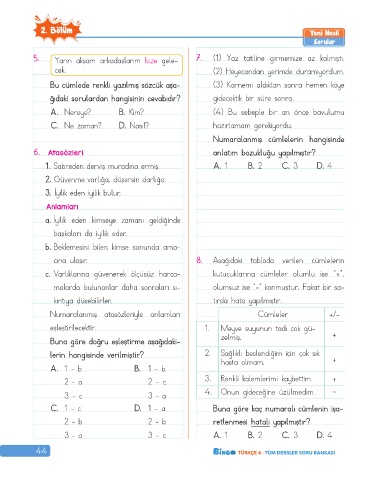 2. Bölüm
Yeni Nesil
Sorular
5. Yarın akşam arkadaşlarım bize gele-
cek.
Bu cümlede renkli yazılmış sözcük aşa-
ğıdaki sorulardan hangisinin cevabıdır?
A. Nereye? B. Kim?
C. Ne zaman? D. Nasıl?
6. Atasözleri
1. Sabreden derviş muradına ermiş.
2. Güvenme varlığa, düşersin darlığa.
3. İyilik eden iyilik bulur.
Anlamları
a. İyilik eden kimseye zamanı geldiğinde
başkaları da iyilik eder.
b. Beklemesini bilen kimse sonunda ama-
cına ulaşır.
c. Varlıklarına güvenerek ölçüsüz harca-
malarda bulunanlar daha sonraları sı-
kıntıya düşebilirler.
Numaralanmış atasözleriyle anlamları
eşleştirilecektir.
Buna göre doğru eşleştirme aşağıdaki-
lerin hangisinde verilmiştir?
A. 1 - b B. 1 - b
2 - a 2 - c
3 - c 3 - a
C. 1 - c D. 1 - a
2 - b 2 - b
3 - a 3 - c
7. (1) Yaz tatiline girmemize az kalmıştı.
(2) Heyecandan yerimde duramıyordum.
(3) Karnemi aldıktan sonra hemen köye
gidecektik bir süre sonra.
(4) Bu sebeple bir an önce bavulumu
hazırlamam gerekiyordu.
Numaralanmış cümlelerin hangisinde
anlatım bozukluğu yapılmıştır?
A. 1 B. 2 C. 3 D. 4
8. Aşağıdaki tabloda verilen cümlelerin
kutucuklarına cümleler olumlu ise "+",
olumsuz ise "-" konmuştur. Fakat bir sa-
tırda hata yapılmıştır.
Cümleler +/-
1. Meyve suyunun tadı çok gü-
zelmiş. +
2. Sağlıklı beslendiğim için çok sık
hasta olmam. +
3. Renkli kalemlerimi kaybettim. +
4. Onun gideceğine üzülmedim. -
Buna göre kaç numaralı cümlenin işa-
retlenmesi hatalı yapılmıştır?
A. 1 B. 2 C. 3 D. 4
44
BinGO TÜRKÇE 4 - TÜM DERSLER SORU BANKASI